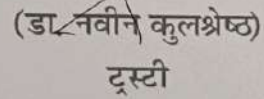 (डा. नवीन कुलश्रेष्ठ)
ट्रस्टी